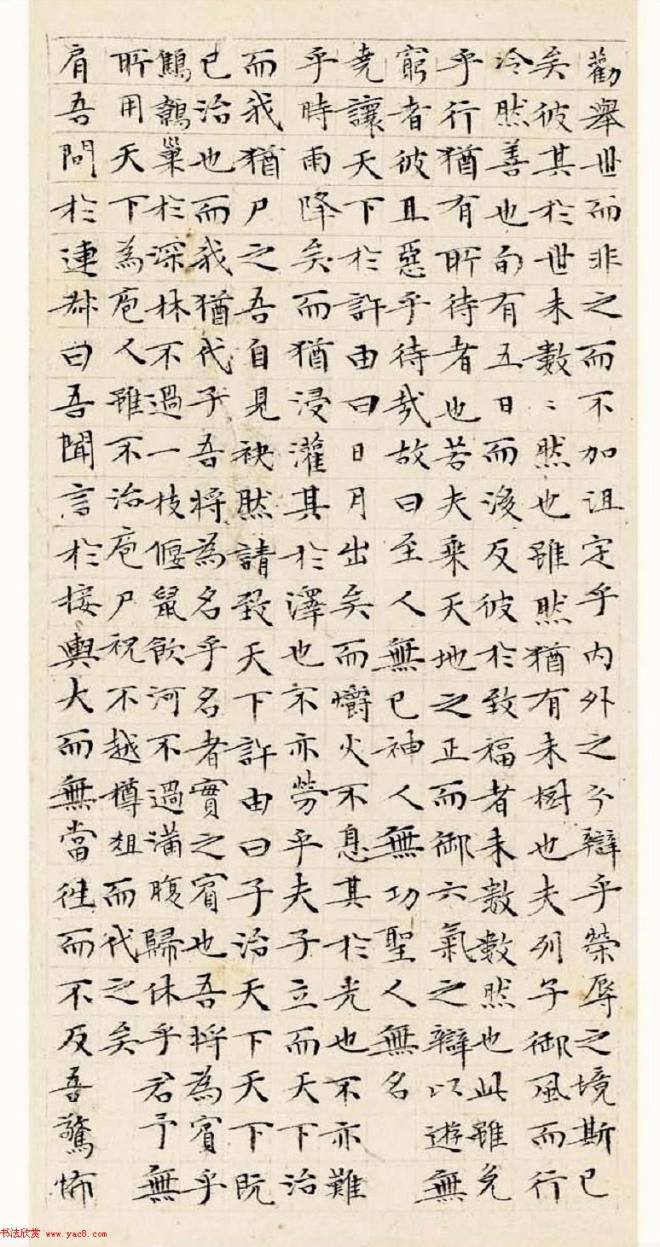 勸舉世而非之而不加诅定乎内外之分辯乎榮辱之境斯已
矣彼其於世未數〻然也雖然猶有未樹也夫列子御風而行
泠然善也旬有五日而後反彼於致福者未數數然也此雖免
乎行猶有所待者也若夫乘天地之正而御六氣之辯以遊無
窮者彼且惡乎待哉故曰至人無已神人無功聖人無名
堯讓天下於許由曰日月出矣而爝火不息其於光也不亦難
乎時雨降矣而猶浸灌其於澤也不亦勞乎夫子立而天下治
而我猶尸之吾自見缺然請致天下許由曰子治天下天下既
已治也而我猶代子吾將為名乎名者實之賓也吾將為賓乎
鷦鷯巢於深林不過一枝偃鼠飲河不過滿腹歸休乎君予無
所用天下為庖人雖不治庖尸祝不越樽俎而代之矣
肩吾問於連叔曰吾聞言於接輿大而無當往而不反吾驚怖
书法欣赏 www.yac8.com